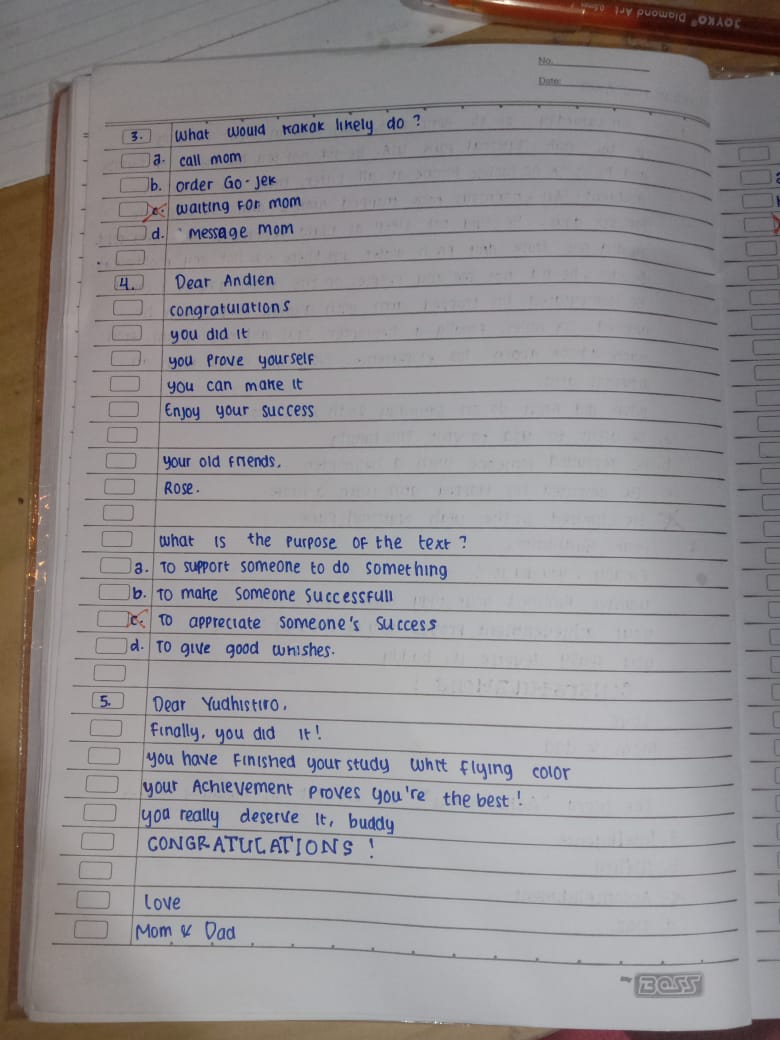 JOYKO® Diamond Art
No.
Date:
3. What would Kakak likely do ?
a. call mom
b. order Go-jek
c. waiting For mom
d. message Mom
4. Dear Andien
congratulations
you did it
you prove yourself
you can make it
Enjoy your success
your old Friends,
Rose.
what is the purpose of the text ?
a. To support someone to do something
b. To make someone successfull
c. To appreciate someone's success
d. To give good whishes.
5. Dear Yudhistiro,
Finally, you did it!
you have Finished your study whit flying color
your Achievement proves you're the best!
you really deserve it, buddy
CONGRATULATIONS !
Love
Mom & Dad
BOSS